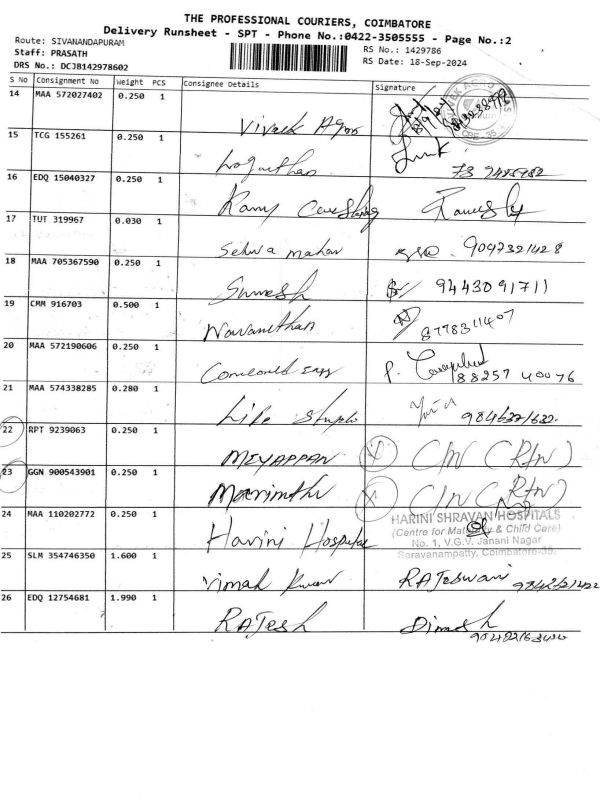 THE PROFESSIONAL COURIERS, COIMBATORE
Delivery Runsheet - SPT - Phone No.:0422-3505555 - Page No.:2
Route: SIVANANDAPURAM
RS No.: 1429786
Staff: PRASATH
RS Date: 18-Sep-2024
DRS No.: DCJB142978602
S No Consignment No Weight PCS Consignee Details Signature
14 MAA 572027402 0.250 1 Vivek Agro
15 TCG 155261 0.250 1
16 EDQ 15040327 0.250 1
17 TUT 319967 0.030 1 Selva mahar 9047321428
18 MAA 705367590 0.250 1 Suresh 9443091711
19 CMM 916703 0.500 1 Navaneethan 8778311407
20 MAA 572190606 0.250 1 P. 88257 40076
21 MAA 574338285 0.280 1 Life
22 RPT 9239063 0.250 1 MEYAPPAN (RTN)
23 GGN 900543901 0.250 1 Marimuthu (RTN)
24 MAA 110202772 0.250 1 Harini Hospital
HARINI SHRAVAN HOSPITALS
(Centre for Maternity & Child Care)
No. 1, V.G.V. Janani Nagar
Saravanampatty, Coimbatore-35.
25 SLM 354746350 1.600 1 Vimal Kumar RAJeswari
26 EDQ 12754681 1.990 1 RAJesh Dinesh